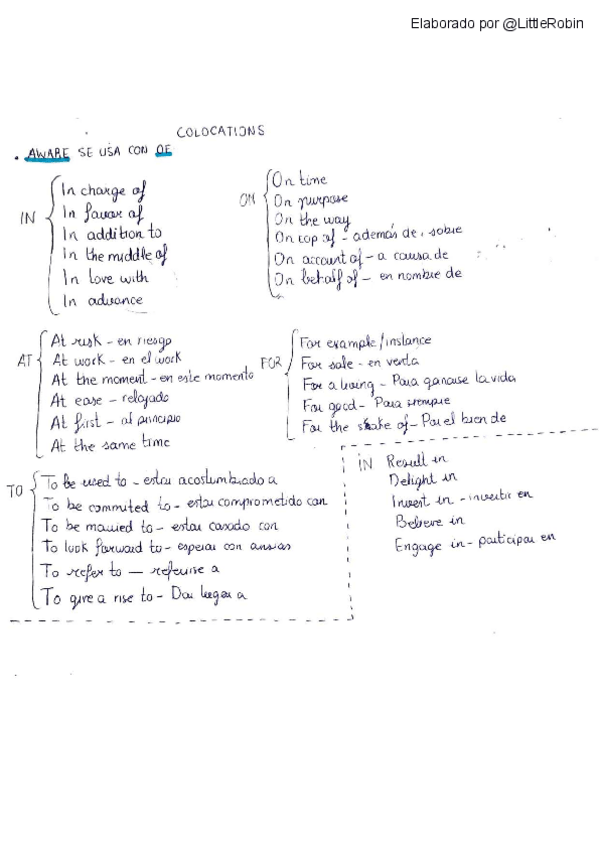 Elaborado por @LittleRobin
COLOCATIONS
. AWARE SE USA CON OF
IN
In charge of
In favor of
In addition to
In the middle of
In love with
In advance
ON
On time
On purpose
On the way
On top of - además de, sobre
On account of - a causa de
On behalf of - en nombre de
AT
At risk - en riesgo
At work - en el work
At the moment - en este momento
At ease - relajado
At first - al principio
At the same time
FOR
For example/instance
For sale - en venta
For a living - Para ganarse la vida
For good - Para siempre
For the sake of - Por el bien de
TO
To be used to - estar acostumbrado a
To be commuted to - estar comprometido con
To be married to - estar casado con
To look forward to - esperar con ansias
To refer to — referirse a
To give a rise to - Dar lugar a
IN
Result in
Delight in
Invest in - invertir en
Believe in
Engage in - participar en